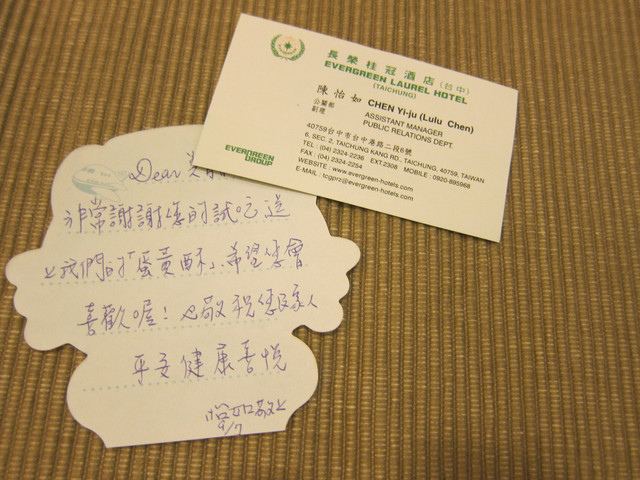 長榮桂冠酒店(台中)
EVERGREEN LAUREL HOTEL
(TAICHUNG)
陳怡如 CHEN Yi-ju (Lulu Chen)
公關部 ASSISTANT MANAGER
副理 PUBLIC RELATIONS DEPT.
40759台中市台中港路二段6號
6, SEC. 2, TAICHUNG KANG RD., TAICHUNG, 40759, TAIWAN
TEL : (04) 2324-2236 EXT.2308 MOBILE : 0920-895968
FAX : (04) 2324-2254
WEBSITE : www.evergreen-hotels.com
E-MAIL : tcgprz@evergreen-hotels.com
EVERGREEN
GROUP
Dear 美
非常謝謝您的試吃 送
上我們的「蛋黃酥」希望您會
喜歡喔! 也敬祝您及家人
平安健康喜悅
怡如敬上
9/7